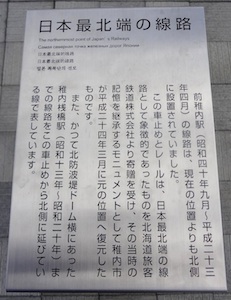 日本最北端の線路
The northernmost point of Japan's Railways
Самая северная точка железных дорог Японии
日本最北端的铁路
日本最北端的鐵路
일본 최북단의 선로
前稚内駅（昭和四十年九月〜平成二十三
年四月）の線路は、現在の位置よりも北側
に設置されていました。
この車止めとレールは、日本最北端の線
路として象徴的であったものを北海道旅客
鉄道株式会社より寄贈を受け、その当時の
記憶を継承するモニュメントとして稚内市
が平成二十四年三月に元の位置へ復元した
ものです。
また、かつて北防波堤ドーム横にあった
稚内桟橋駅（昭和十三年〜昭和二十年）ま
での線路をこの車止めから北側に延びてい
る線で表しています。